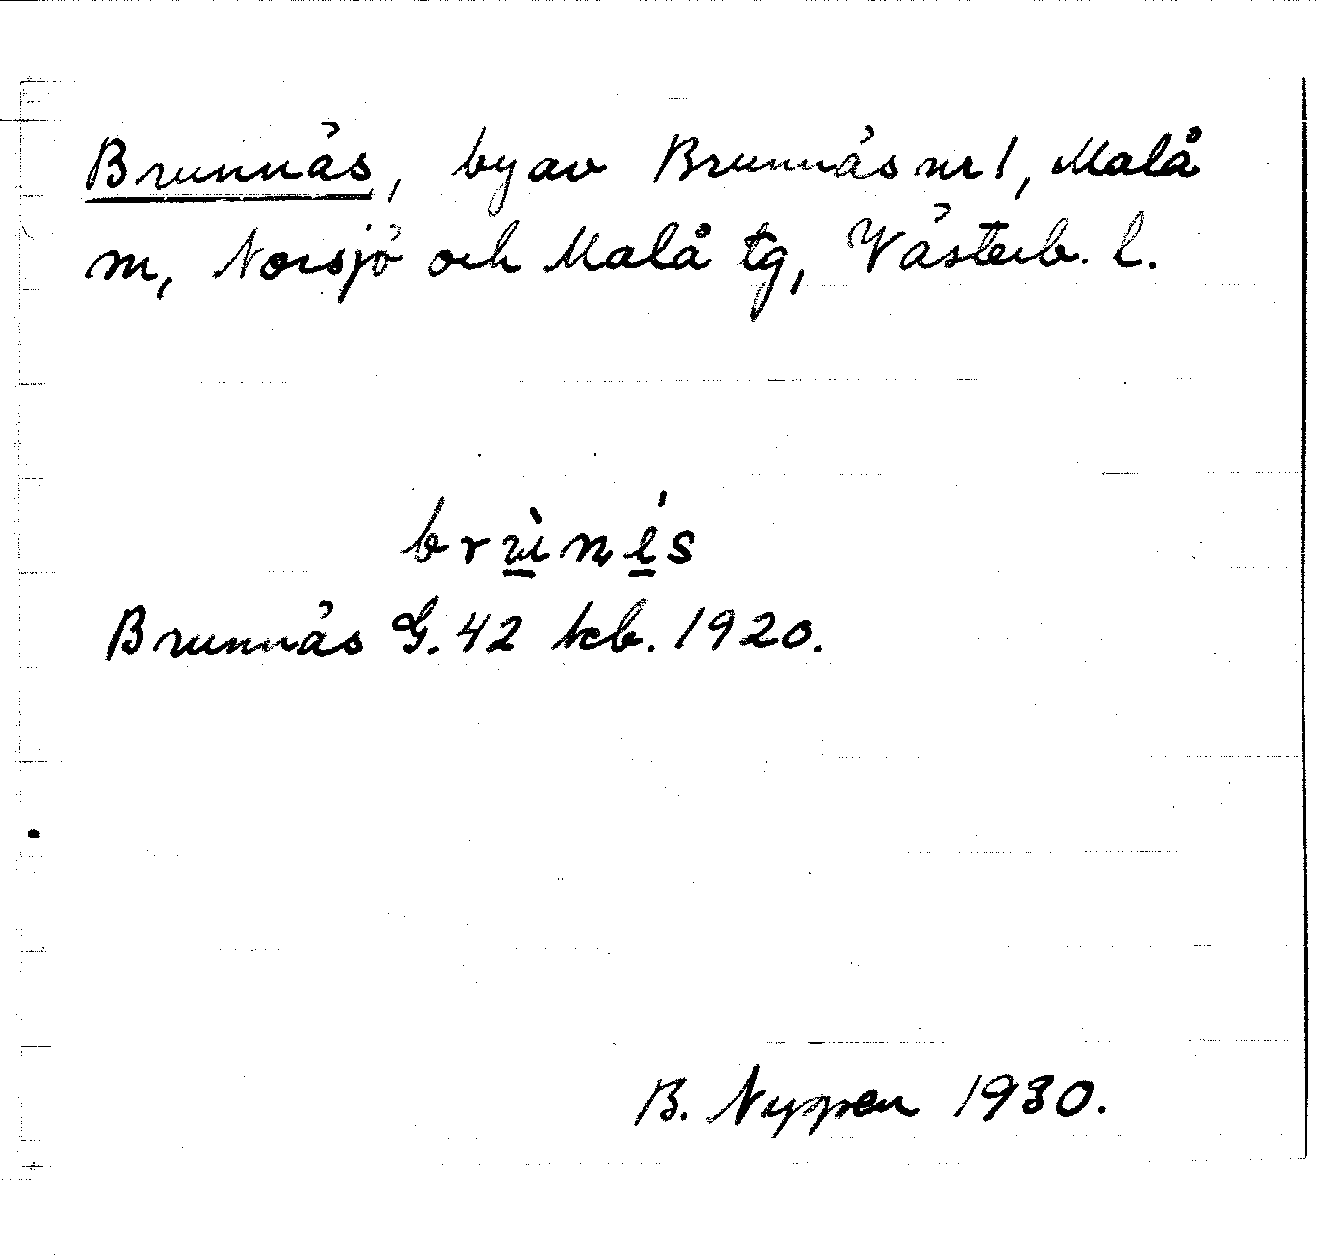 Brunnäs, by av Brunnäs nr 1, Malå
m, Norsjö och Malå tg, Västerb. l.
Brunnäs G. 42 kb. 1920.
B. Nyppen 1930.